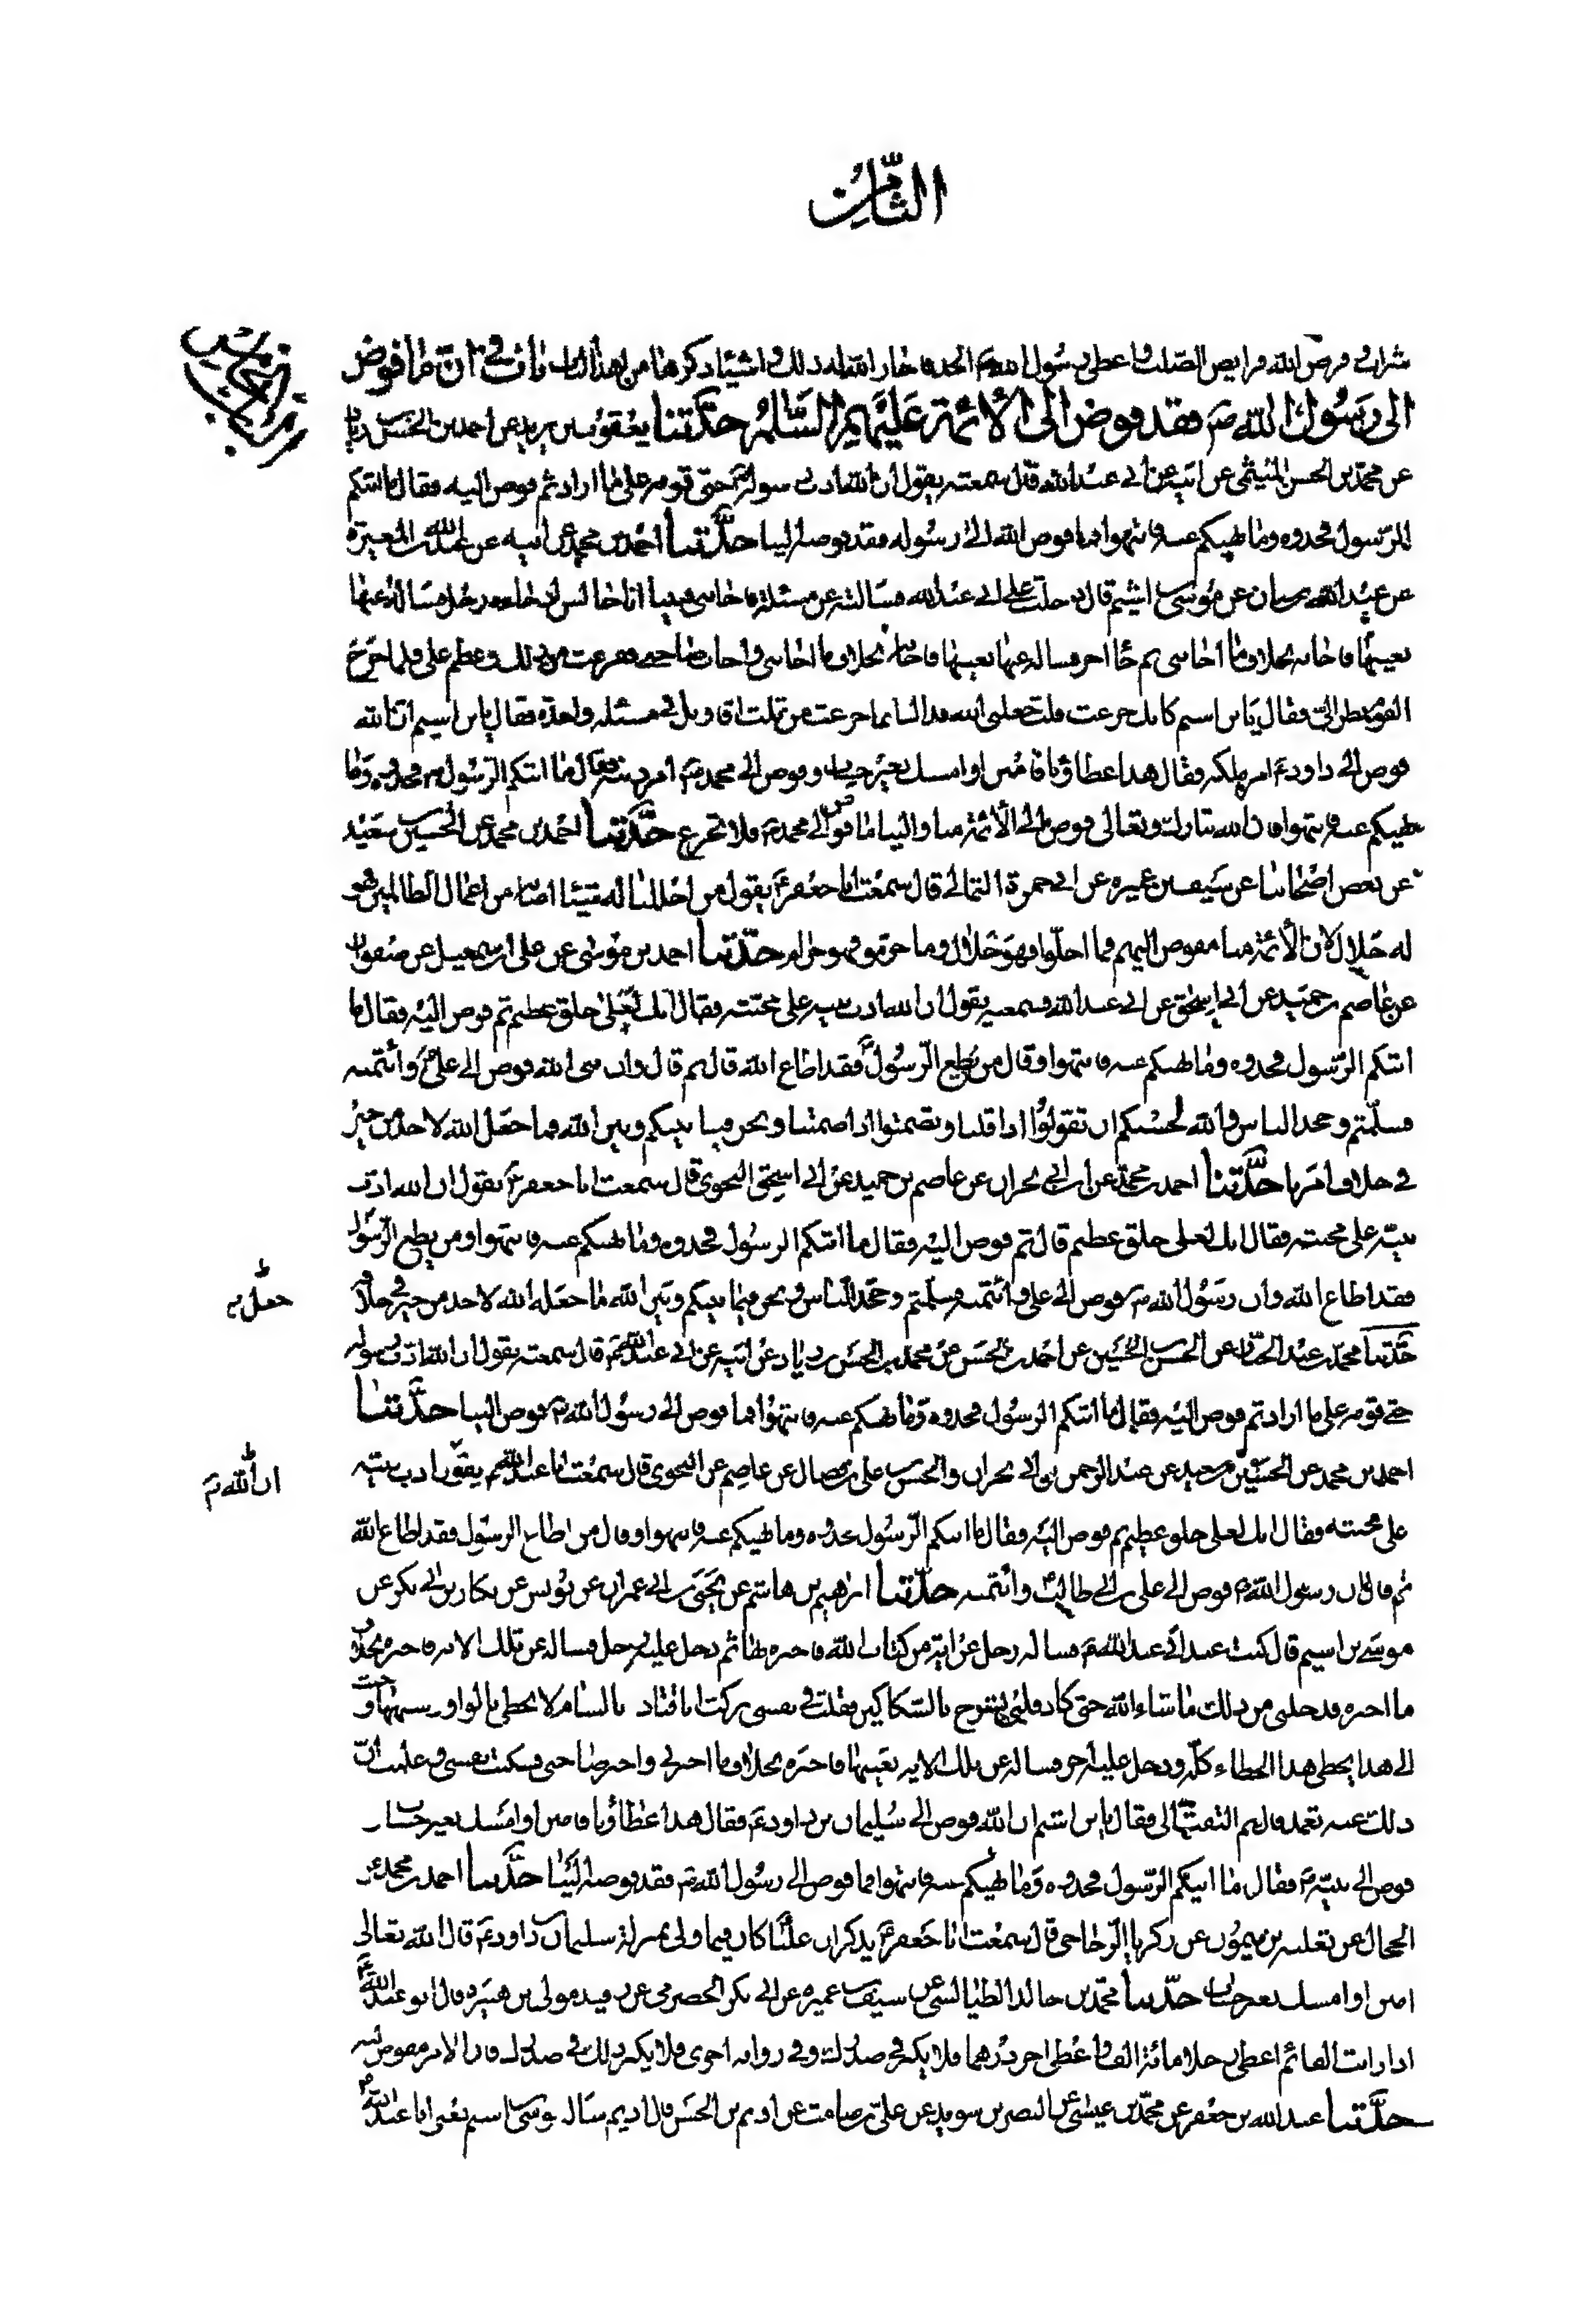 الثامن
شرابى وفرض الله فرايض الصلب واعطى رسول الله ص الجد فاجاز الله له ذلك واشياء ذكرها من هذا الباب باب فى ان ما فوض
الى رسول الله ص فقد فوض الى الأئمة عليهم السلام حدثنا يعقوب بن يزيد عن احمد بن الحسن بن زياد
عن محمد بن الحسن الميثمى عن ابيه عن ابى عبد الله قال سمعته يقول ان الله ادب رسوله حتى قومه على ما اراد ثم فوض اليه فقال ما اتيكم
الرسول فخذوه وما نهيكم عنه فانتهوا فما فوض الله الى رسوله فقد فوضه الينا حدثنا احمد بن محمد عن ابيه عن عبد الله بن المغيرة
عن عبد الله بن سنان عن موسى بن اشيم قال دخلت على ابى عبد الله فسالته عن مسئلة فاجابنى فبينا انا جالس اذ جاءه رجل فساله عنها
بعينها فاجابه بخلاف ما اجابنى ثم جاء اخر فساله عنها بعينها فاجابه بخلاف ما اجابنى واجاب صاحبى ففزعت من ذلك وعظم على فلما خرج
القوم نظر الى فقال يا بن اشيم كانك جزعت قلت جعلنى الله فداك انما جزعت من ثلث اقاويل فى مسئلة واحدة فقال يا بن اشيم ان الله
فوض الى داود ع امر ملكه فقال هذا عطاؤنا فامنن او امسك بغير حساب وفوض الى محمد ص امر دينه فقال ما اتيكم الرسول فخذوه وما
نهيكم عنه فانتهوا فان الله تبارك وتعالى فوض الى الأئمة منا والينا ما فوض الى محمد ص فلا تجزع حدثنا احمد بن محمد عن الحسين بن سعيد
عن بعض اصحابنا عن سيف بن عميرة عن ابى حمزة الثمالى قال سمعت ابا جعفر ع يقول من احللنا له شيئا اصابه من اعمال الظالمين فهو
له حلال لان الأئمة منا مفوض اليهم فما احلوا فهو حلال وما حرموا فهو حرام حدثنا احمد بن موسى عن على بن اسمعيل عن صفوان
عن عاصم بن حميد عن ابى اسحق عن ابى عبد الله فسمعته يقول ان الله ادب نبيه على محبته فقال انك لعلى خلق عظيم ثم فوض اليه فقال ما
اتيكم الرسول فخذوه وما نهيكم عنه فانتهوا وقال من يطع الرسول فقد اطاع الله قال ثم قال وان نبى الله فوض الى على ع وائتمنه
فسلمتم وجحد الناس والله لحسبكم ان تقولوا اذا قلنا وتصمتوا اذا صمتنا ونحن فيما بينكم وبين الله فما جعل الله لاحد من خير
فى خلاف امرنا حدثنا احمد بن محمد عن ابن ابى نجران عن عاصم بن حميد عن ابى اسحق النحوى قال سمعت ابا جعفر ع يقول ان الله ادب
نبيه على محبته فقال انك لعلى خلق عظيم قال ثم فوض اليه فقال ما اتيكم الرسول فخذوه وما نهيكم عنه فانتهوا ومن يطع الرسول
فقد اطاع الله وان رسول الله ص فوض الى على وائتمنه فسلمتم وجحد الناس ونحن فيما بينكم وبين الله ما جعله الله لاحد من خير فى خلاف
حدثنا محمد بن عبد الجبار عن الحسن بن الحسين عن احمد بن الحسن عن محمد بن الحسن بن زياد عن ابيه عن ابى عبد الله ع قال سمعته يقول ان الله ادب رسوله
حتى قومه على ما اراد ثم فوض اليه فقال ما اتيكم الرسول فخذوه وما نهيكم عنه فانتهوا فما فوض الى رسول الله ص فوض الينا حدثنا
احمد بن محمد عن الحسين بن سعيد عن عبد الرحمن بن ابى نجران والحسن بن على بن فضال عن عاصم عن النحوى قال سمعت ابا عبد الله ع يقول ادب نبيه
ان الله ع
على محبته فقال انك لعلى خلق عظيم ثم فوض اليه فقال ما اتيكم الرسول فخذوه وما نهيكم عنه فانتهوا وقال من اطاع الرسول فقد اطاع الله
ثم قال ان رسول الله ص فوض الى على بن ابى طالب وائتمنه حدثنا ابراهيم بن هاشم عن يحيى بن ابى عمران عن يونس عن بكار بن ابى بكر عن
موسى بن اشيم قال كنت عند ابى عبد الله ع فساله رجل عن اية من كتاب الله فاخبره بها ثم دخل عليه رجل فساله عن تلك الاية فاخبره بخلاف
ما اخبره فدخلنى من ذلك ما شاء الله حتى كاد قلبى يشرح بالسكاكين فقلت فى نفسى تركت ابا قتادة بالشام لا يخطى بالواو وشبهها وجئت
الى هذا يخطى هذا الخطاء كله ودخل عليه اخر فساله عن تلك الاية بعينها فاخبره بخلاف ما اخبرنى واخبر صاحبى فسكنت نفسى وعلمت ان
ذلك عنه تعمد قال ثم التفت الى فقال يا بن اشيم ان الله فوض الى سليمان بن داود ع فقال هذا عطاؤنا فامنن او امسك بغير حساب
فوض الى نبيه ص فقال ما اتيكم الرسول فخذوه وما نهيكم عنه فانتهوا فما فوض الى رسول الله ص فقد فوضه الينا حدثنا احمد بن محمد عن
الحجال عن ثعلبه بن ميمون عن زكريا الزجاجى قال سمعت ابا جعفر ع يذكر ان عليا كان فيما ولى بمنزلة سليمان بن داود ع قال الله تعالى
امنن او امسك بغير حساب حدثنا محمد بن خالد الطيالسى عن سيف بن عميرة عن ابى بكر الحضرمى عن رفيد مولى بن هبيرة قال ابو عبد الله ع
اذا رايت القائم اعطى رجلا مائة الف واعطى اخر درهما فلا يكبر فى صدرك وفى رواية اخرى فلا يكبر ذلك فى صدرك فان الامر مفوض اليه
حدثنا عبد الله بن جعفر عن محمد بن عيسى عن النضر بن سويد عن على بن صامت عن اديم بن الحسن قال اديم ساله موسى بن اشيم يعنى ابا عبد الله ع